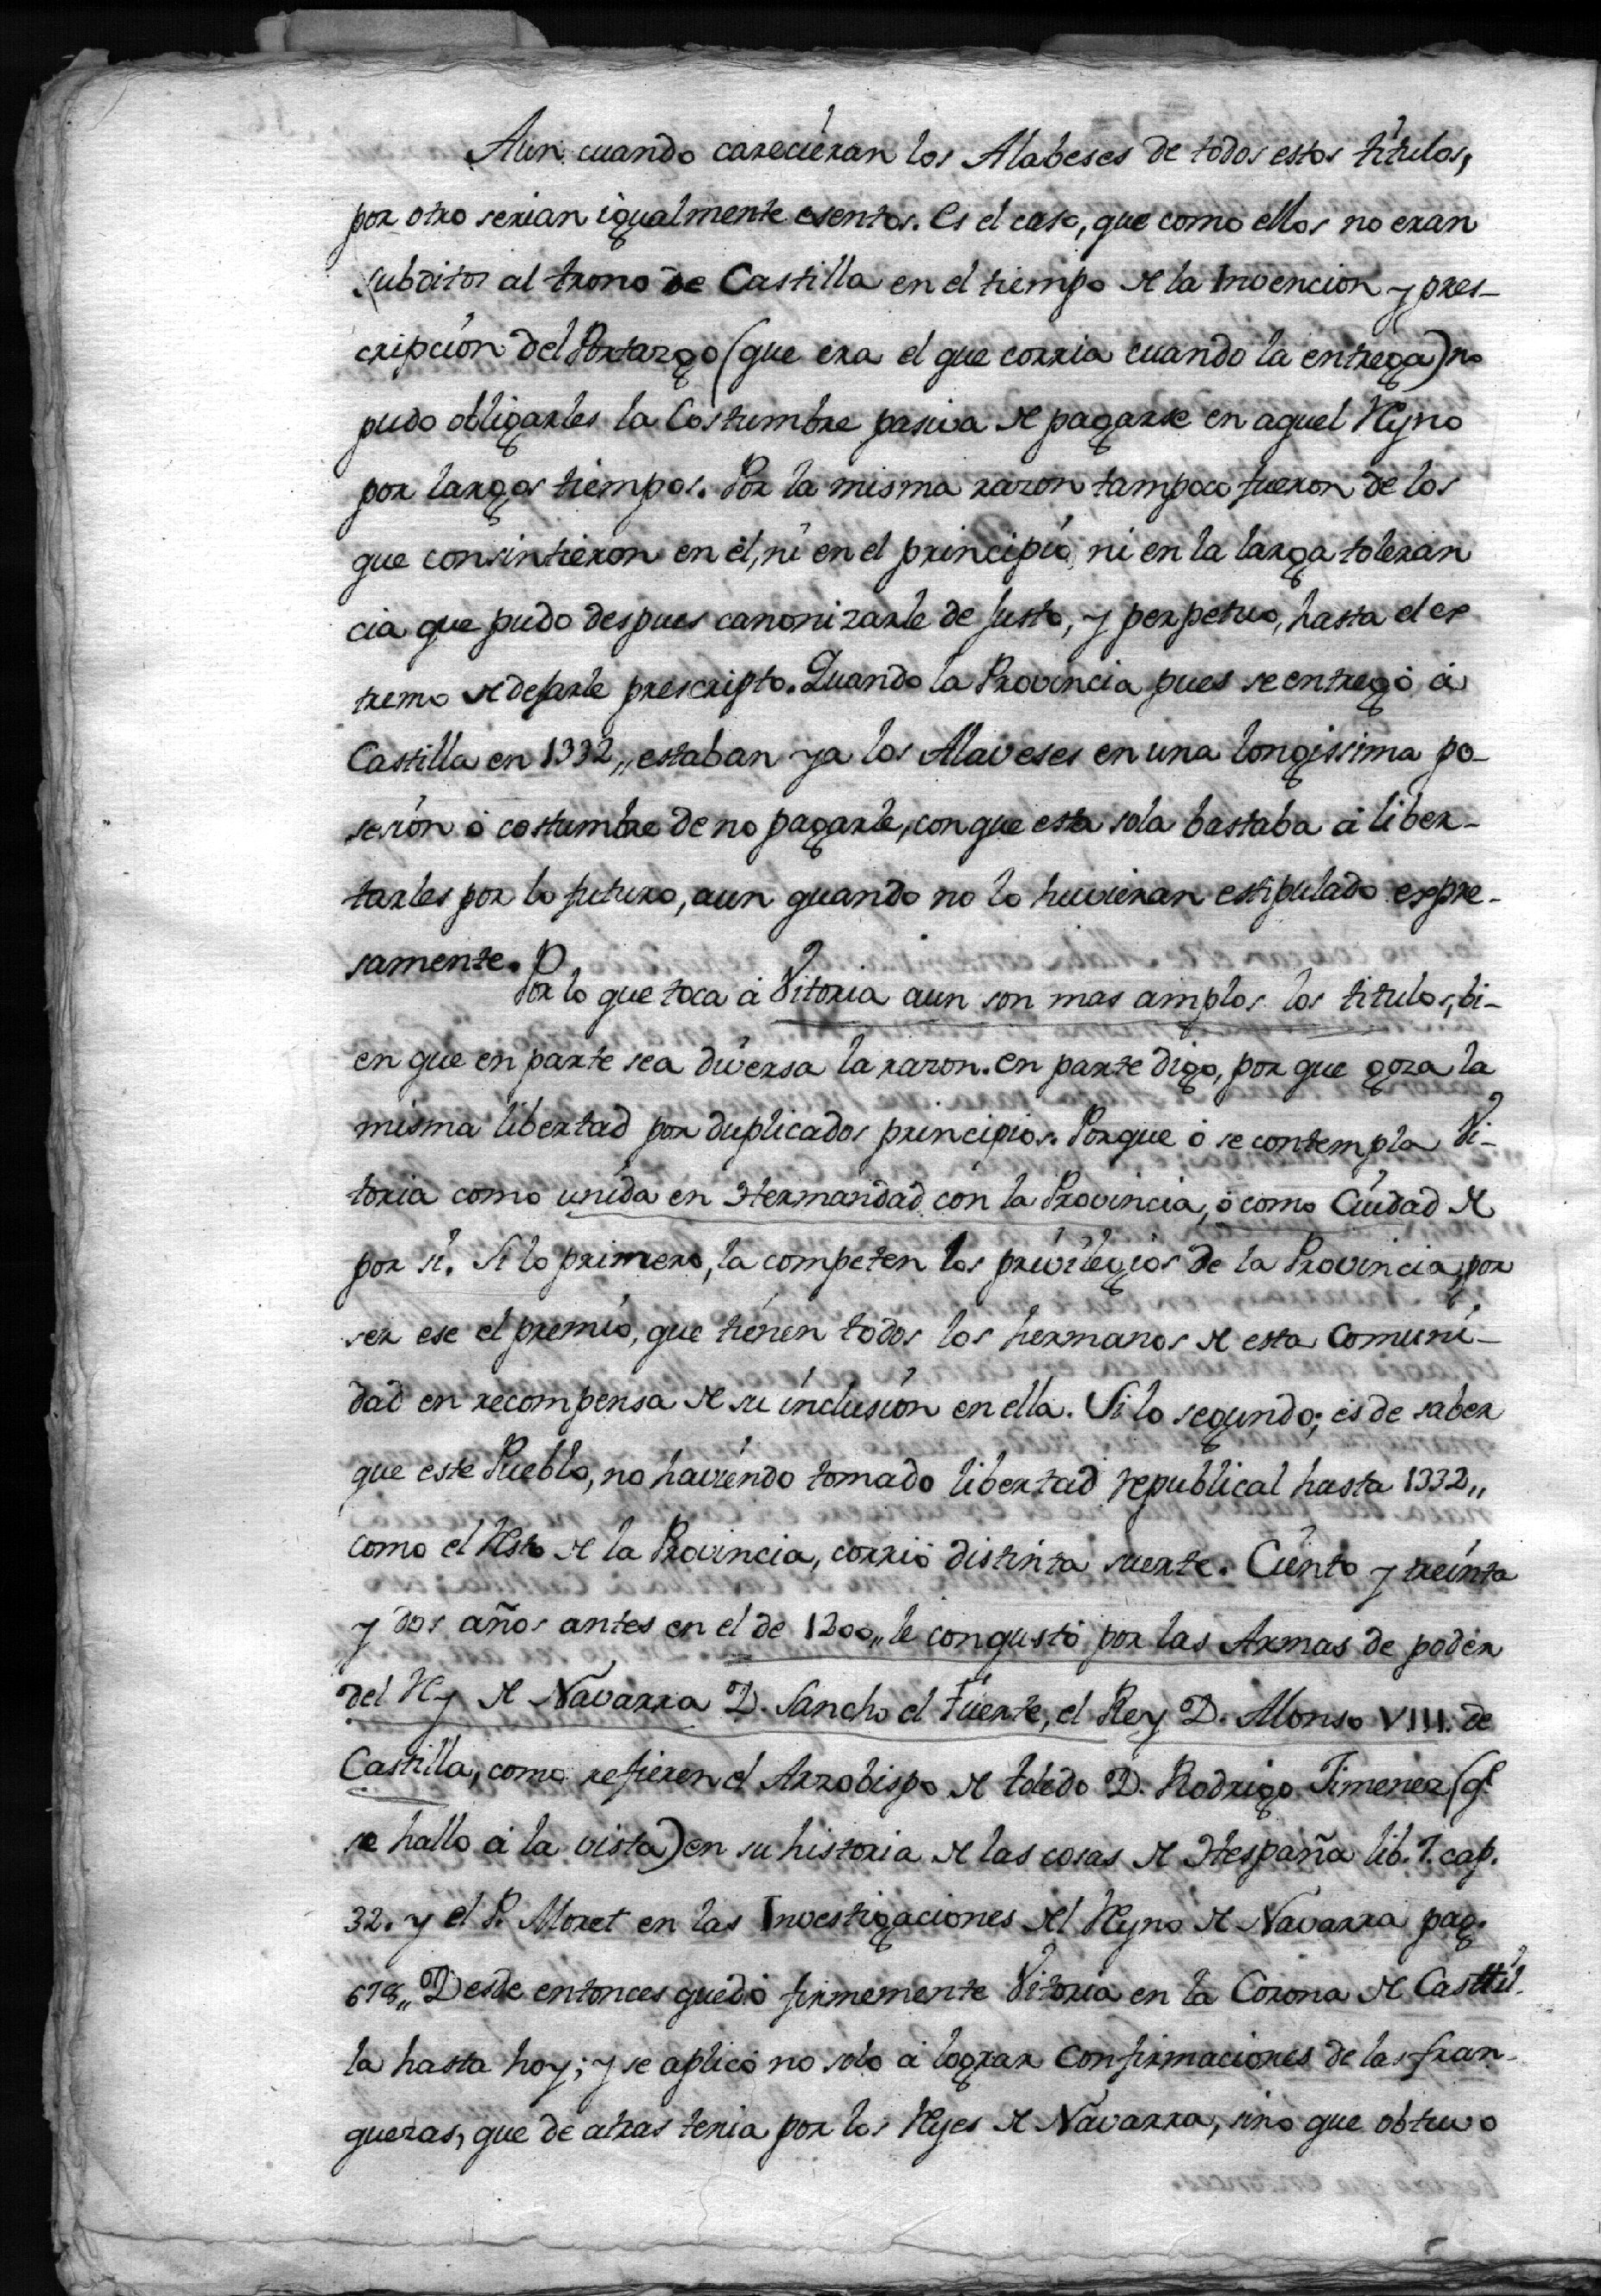 Aun cuando carecieran los Alabeses de todos estos titulos,
por otro serian igualmente esentos. Es el caso, que como ellos no eran
subditos al trono de Castilla en el tiempo de la Invencion y pres-
cripcion del Portazgo (que era el que corria cuando la entrega) no
pudo obligarles la Costumbre pasiva de pagarse en aquel Reyno
por largos tiempos. Por la misma razon tampoco fueron de los
que consintieron en él, ni en el principio, ni en la larga toleran
cia que pudo despues canonizarle de Justo, y perpetuo, hasta el ex
tremo de dejarle prescripto. Quando la Provincia pues se entregó á
Castilla en 1332,, estaban ya los Alaveses en una longissima po-
sesion ó costumbre de no pagarle, con que esta sola bastaba á liber-
tarles por lo futuro, aun quando no lo huvieran estipulado expre-
samente.
Por lo que toca á Vitoria aun son mas amplos los titulos, bi-
en que en parte sea diversa la razon. en parte digo, por que goza la
misma libertad por duplicados principios. Porque ó se contempla Vi-
toria como unida en Hermandad con la Provincia, ó como Ciudad de
por si. Si lo primero, la competen los privilegios de la Provincia, por
ser ese el premio, que tienen todos los hermanos de esta Comuni-
dad en recompensa de su inclusion en ella. Si lo segundo; es de saber
que este Pueblo, no haviendo tomado libertad republical hasta 1332,,
como el Resto de la Provincia, corrió distinta suerte. Ciento y treinta
y dos años antes en el de 1200,, le conquistó por las Armas de poder
del Rey de Navarra D. Sancho el Fuerte, el Rey D. Alonso VIII. de
Castilla, como refieren el Arzobispo de toledo D. Rodrigo Jimenez (qe
se hallo á la vista) en su historia de las cosas de Hespaña lib. 7. cap.
32. y el P. Moret en las Investigaciones del Reyno de Navarra pag.
678,, Desde entonces quedó firmemente Vitoria en la Corona de Castil-
la hasta hoy; y se aplicó no solo á lograr Confirmaciones de las fran-
quezas, que de atras tenia por los Reyes de Navarra, sino que obtuvo